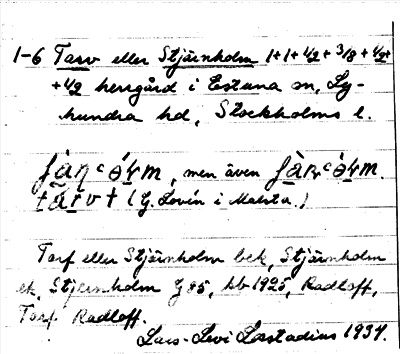 1-6 Tarv eller Stjärnholm 1+1+1/2+3/8+1/2+
+1/2 herrgård i Estuna sn, Ly-
hundra hd, Stockholms l.
, men även
(G. Lovén i Malsta.)
Tarf eller Stjärnholm bek, Stjärnholm
ek, Stjernholm J 85, hb 1925, Radloff,
Tarf Radloff.
Lars-Levi Læstadius 1934.